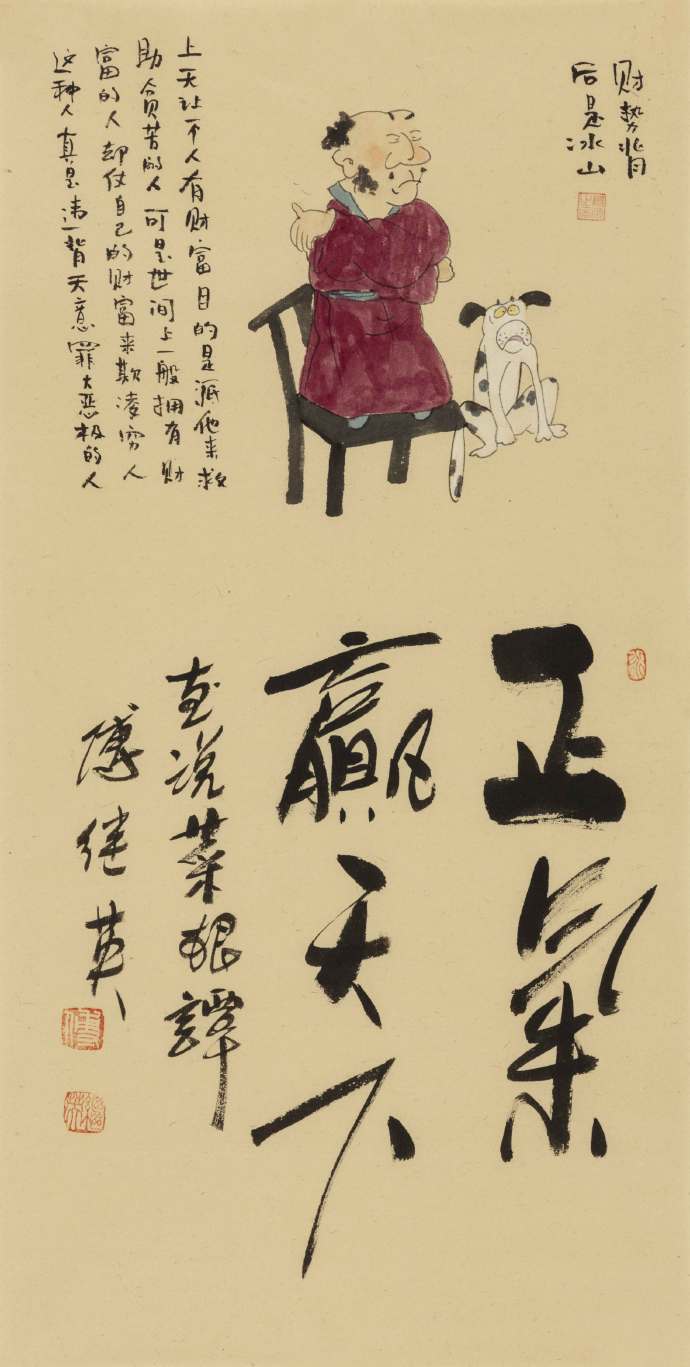 财势背
后是冰山
上天让一个人有财富目的是派他来救
助贫苦的人可是世间上一般拥有财
富的人却仗自己的财富来欺凌穷人
这种人真是违背天意罪大恶极的人
正氣
贏天下
画说菜根譚
傅继英